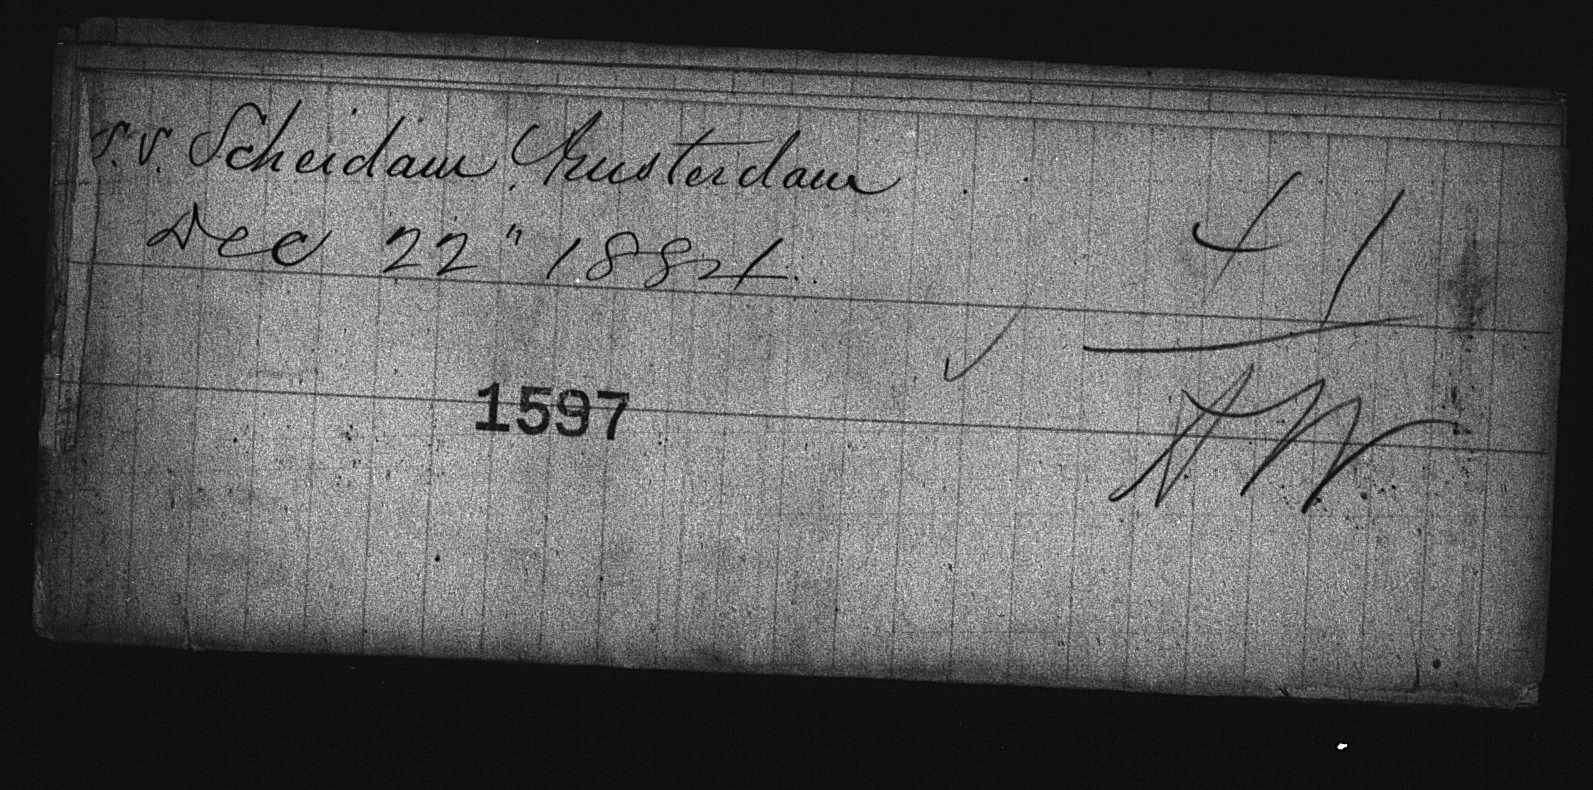 S.S. Scheidam, Amsterdam
Dec 22" 1884.
41
1597